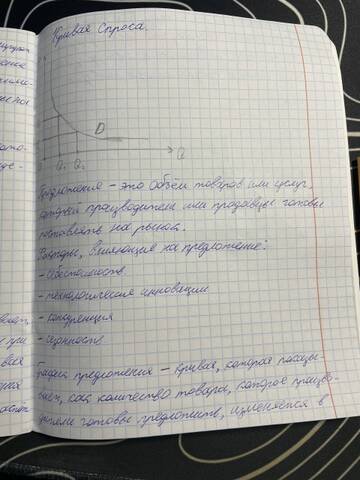 Кривая Спроса.
D
Q₁ Q₂ Q
Предложение - это объём товаров или услуг,
который производители или продавцы готовы
поставлять на рынок.
Факторы, влияющие на предложение:
- себестоимость
- технологические инновации
- конкуренция
- сезонность
График предложения - кривая, которая показы-
вает, как количество товара, которое произво-
дители готовы предложить, изменяется в